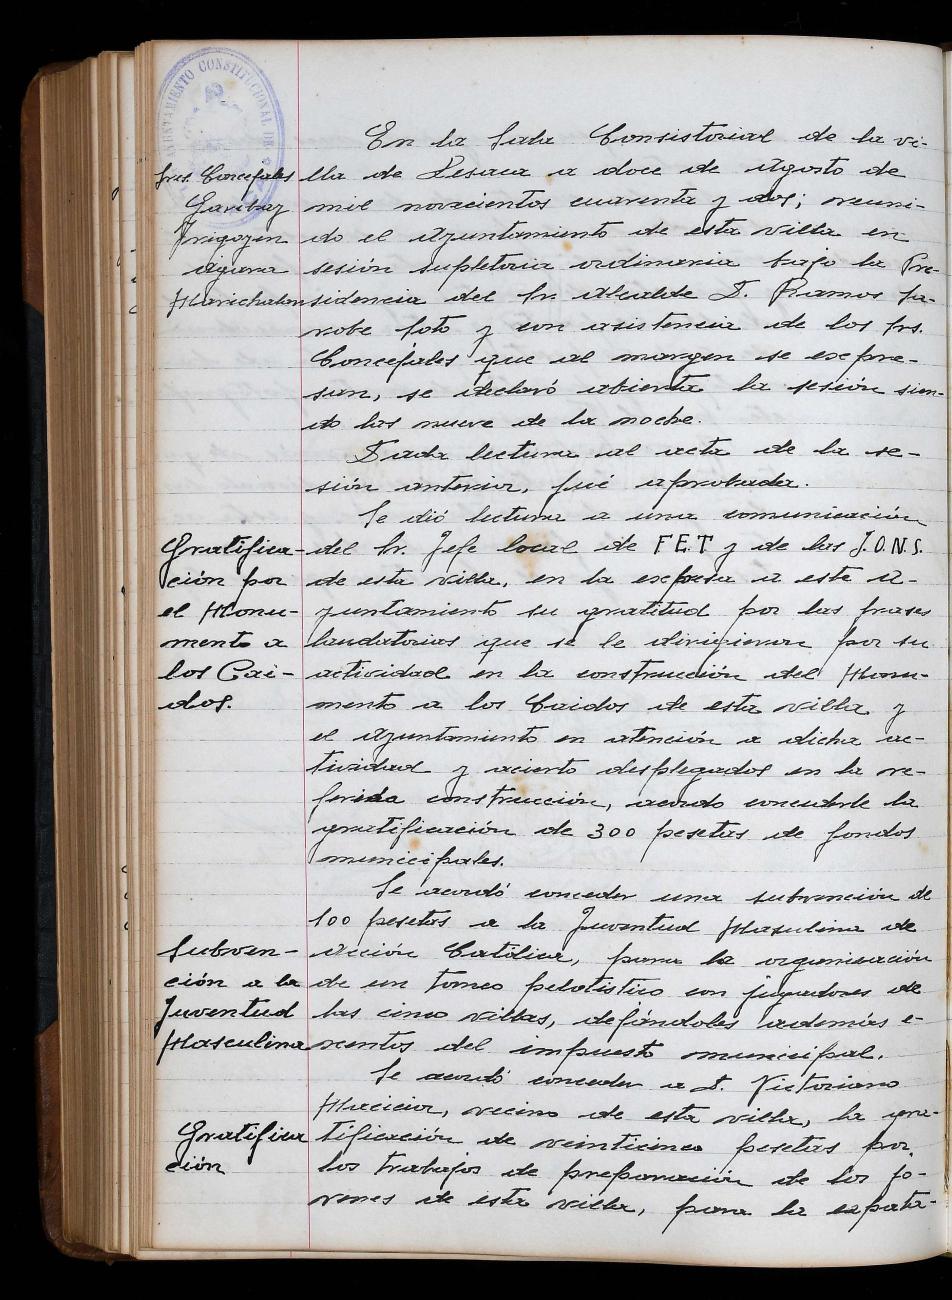 AYUNTAMIENTO CONSTITUCIONAL DE
En la Sala Consistorial de la vi-
Sres. Concejales
Garibay
Irigoyen
Agara
Marichalar
lla de Lesaca a doce de Agosto de
mil novecientos cuarenta y dos; reuni-
do el Ayuntamiento de esta villa en
sesión supletoria ordinaria bajo la Pre-
sidencia del Sr. Alcalde D. Ramos Sa-
robe Soto y con asistencia de los Srs.
Concejales que al margen se expre-
san, se declaró abierta la sesión sien-
do las nueve de la noche.
Dada lectura al acta de la se-
sión anterior, fué aprobada.
Se dió lectura a una comunicación
Gratifica-
ción por
el Monu-
mento a
los Caí-
dos.
del Sr. Jefe local de F.E.T y de las J.O.N.S.
de esta villa, en la expresa a este A-
yuntamiento su gratitud por las frases
laudatorias que se le dirigieron por su
actividad en la construcción del Monu-
mento a los Caidos de esta villa y
el Ayuntamiento en atención a dicha ac-
tividad y acierto desplegados en la re-
ferida construcción, acordo concederle la
gratificación de 300 pesetas de fondos
municipales.
Se acordó conceder una subvención de
100 pesetas a la Juventud Masculina de
Subven-
ción a la
Juventud
Masculina
Acción Católica, para la organización
de un torneo pelotistico con jugadores de
las cinco villas, dejándoles además e-
xentos del impuesto municipal.
Se acordó conceder a D. Victoriano
Macicior, vecino de esta villa, la gra-
Gratifica
ción
tificación de veinticinco pesetas por
los trabajos de preparación de los jo-
venes de esta villa, para la espata-